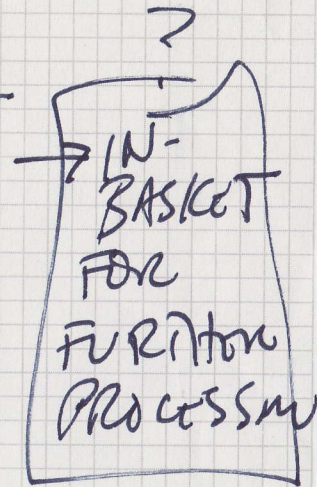 ?
IN-
BASKET
FOR
FURTHER
PROCESSIN